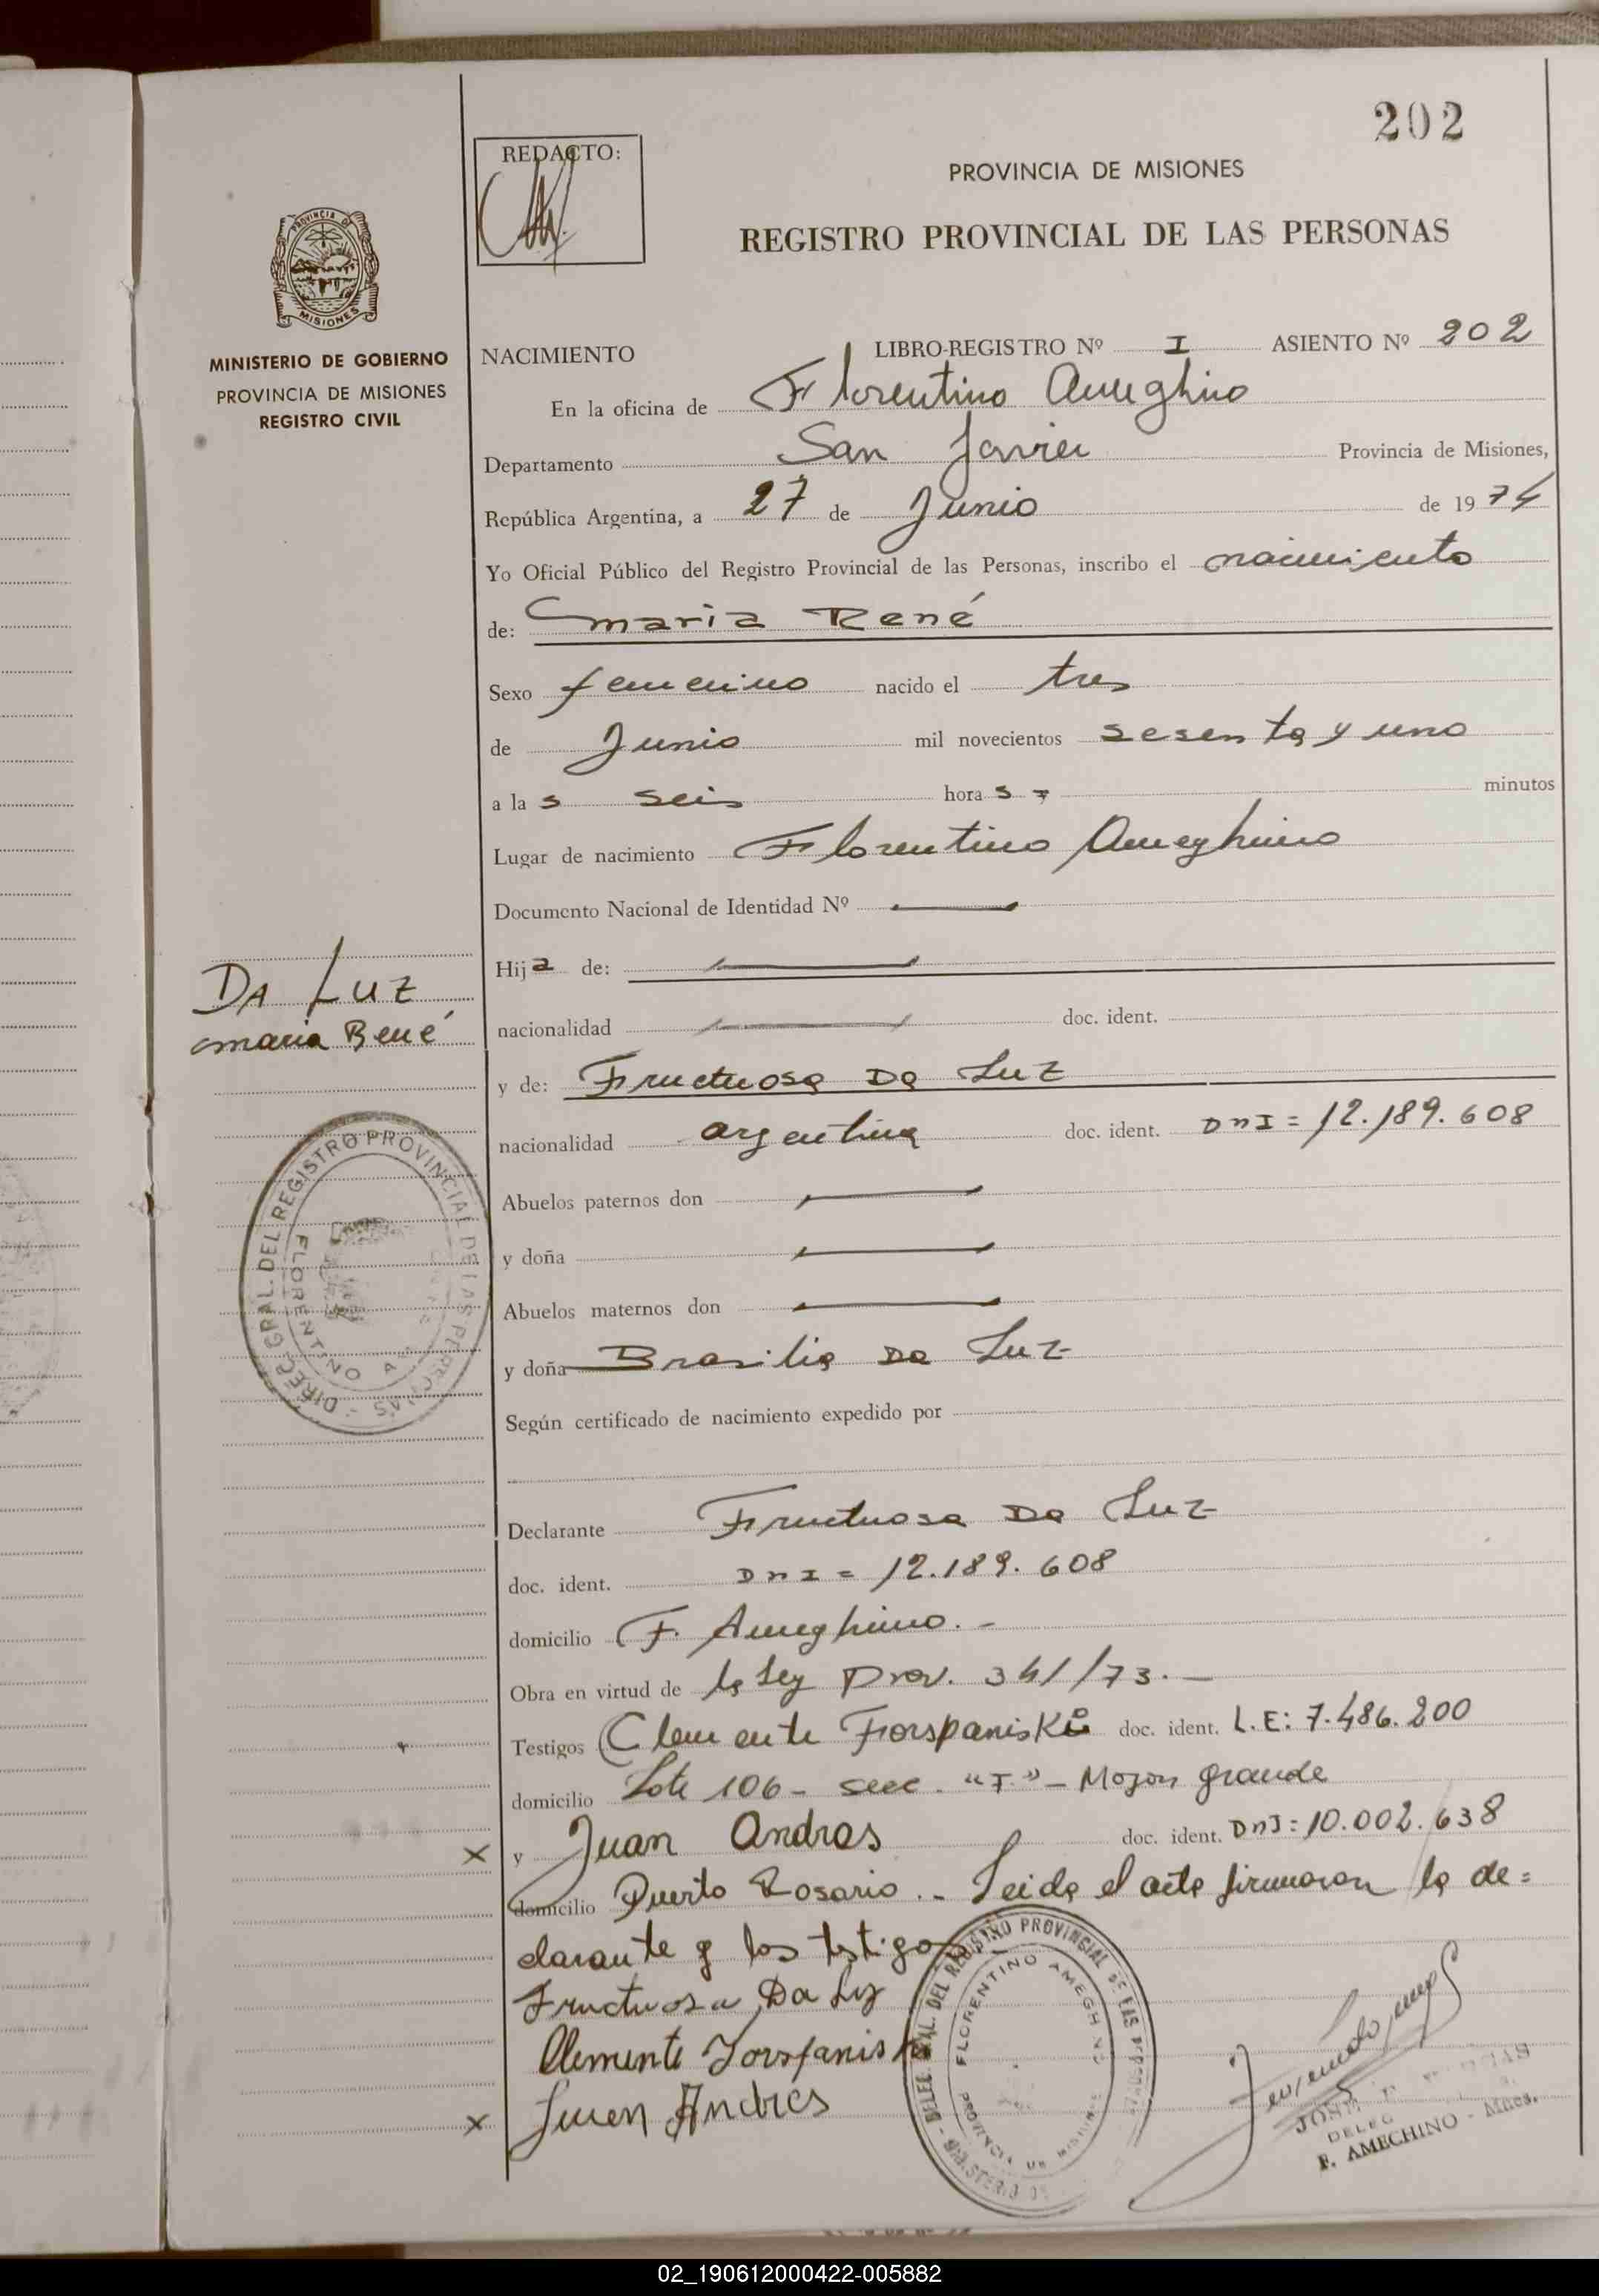 202
REDACTO:
PROVINCIA DE MISIONES
REGISTRO PROVINCIAL DE LAS PERSONAS
PROVINCIA DE
MISIONES
MINISTERIO DE GOBIERNO
PROVINCIA DE MISIONES
REGISTRO CIVIL
NACIMIENTO LIBRO-REGISTRO Nº I ASIENTO Nº 202
En la oficina de Florentino Ameghino
Departamento San Javier Provincia de Misiones,
República Argentina, a 27 de Junio de 1974
Yo Oficial Público del Registro Provincial de las Personas, inscribo el nacimiento
de: maria René
Sexo femenino nacido el tres
de Junio mil novecientos sesenta y uno
a las seis horas = minutos
Lugar de nacimiento Florentino Ameghino
Documento Nacional de Identidad Nº —
Hija de: —
DA LUZ
maria René
nacionalidad — doc. ident.
y de: Fructuosa Da Luz
nacionalidad argentina doc. ident. DnI = 12.189.608
Abuelos paternos don —
y doña —
Abuelos maternos don —
y doña Brasilia Da Luz
Según certificado de nacimiento expedido por
DIREC. GRAL. DEL REGISTRO PROVINCIAL DE LAS PERSONAS
FLORENTINO
Declarante Fructuosa Da Luz
doc. ident. DnI = 12.189.608
domicilio F. Ameghino. -
Obra en virtud de la Ley Prov. 341/73. —
Testigos Clemente Forspaniski doc. ident. L.E: 7.486.200
domicilio Lote 106 - secc. "F." - Mojon grande
x y Juan Andres doc. ident. DnI: 10.002.638
domicilio Puerto Rosario. - Leida el acta firmaron la de=
clarante y los testigos
Fructuosa Da Luz
Clemente Forspanisk
x Juan Andres
DELEG. GRAL. DEL REGISTRO PROVINCIAL DE LAS PERSONAS
FLORENTINO AMEGHINO
PROVINCIA DE MISIONES
MINISTERIO DE
JOSE
DELEG
F. AMECHINO - Mnes.
02_190612000422-005882